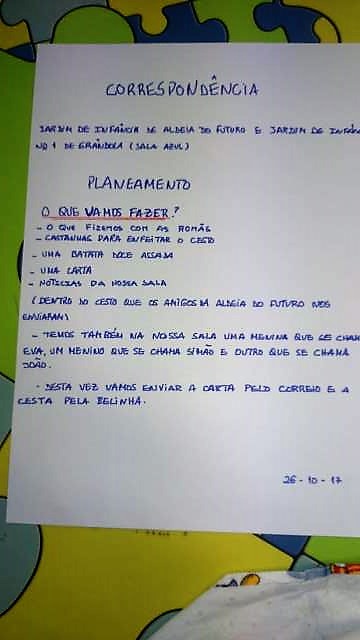 CORRESPONDÊNCIA
JARDIM DE INFÂNCIA DE ALDEIA DO FUTURO E JARDIM DE INFÂN
Nº 1 DE GRÂNDOLA (SALA AZUL)
PLANEAMENTO
O QUE VAMOS FAZER?
- O QUE FIZEMOS COM AS ROMÃS
- CASTANHAS PARA ENFEITAR O CESTO
- UMA BATATA DOCE ASSADA
- UMA CARTA
- NOTÍCIAS DA NOSSA SALA
(DENTRO DO CESTO QUE OS AMIGOS DA ALDEIA DO FUTURO NOS
ENVIARAM)
- TEMOS TAMBÉM NA NOSSA SALA UMA MENINA QUE SE CHAM
EVA, UM MENINO QUE SE CHAMA SIMÃO E OUTRO QUE SE CHAMA
JOÃO.
- DESTA VEZ VAMOS ENVIAR A CARTA PELO CORREIO E A
CESTA PELA BELINHA.
26-10-17